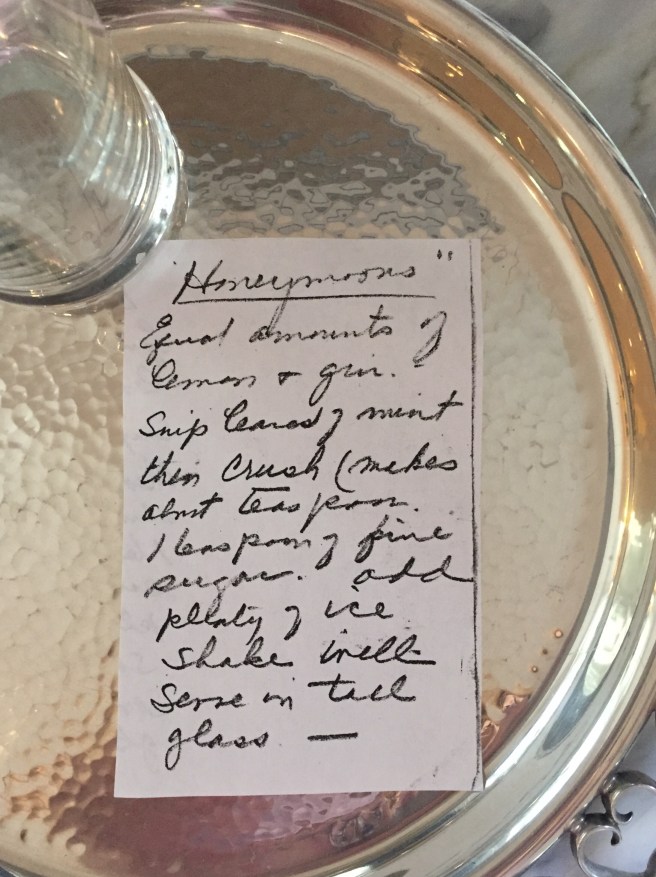 "Honeymoons"
Equal amounts of
lemon + gin.
Snip leaves of mint
then crush (makes
about teaspoon.
1 teaspoon of fine
sugar. add
plenty of ice
shake well
Serve in tall
glass —